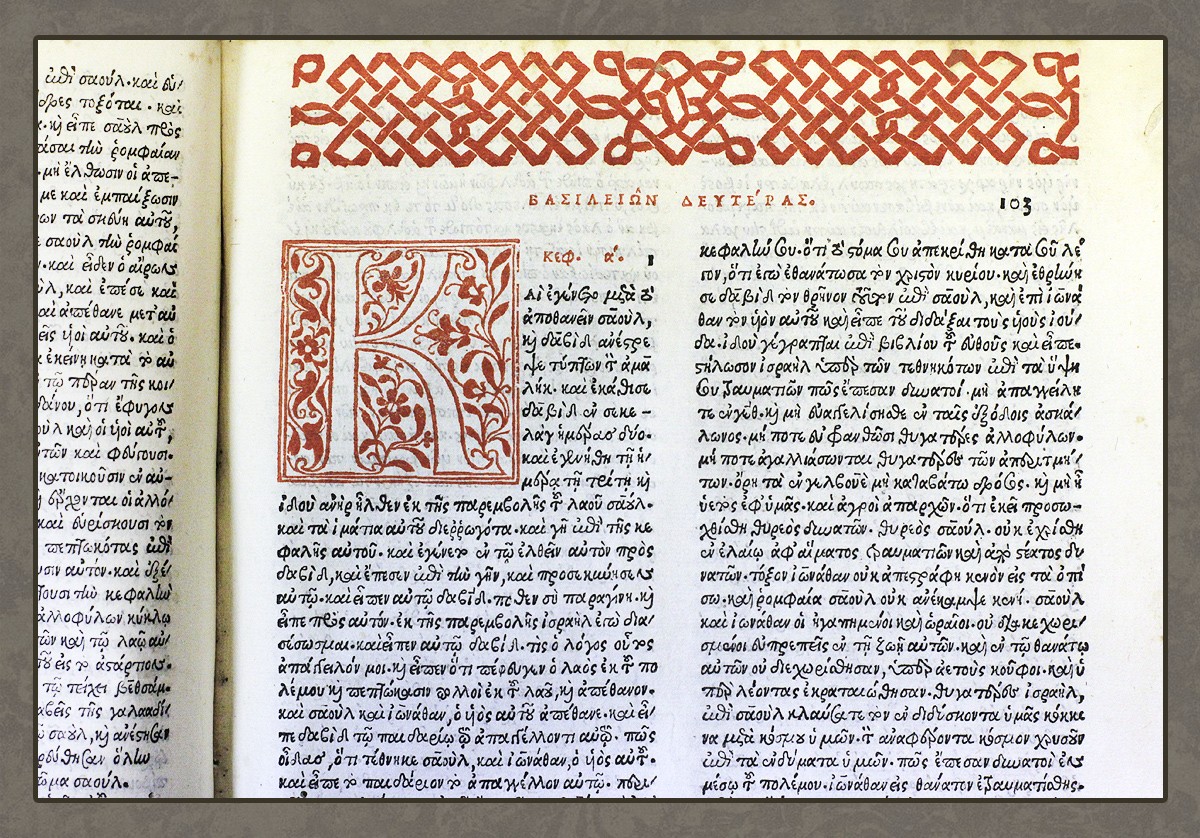 ἐπὶ σαούλ. καὶ εὑ
δρες τοξόται. καὶ
κ. καὶ εἶπε σαοὺλ πρὸς
πάσαι τὴν ῥομφαίαν
. μὴ ἔλθωσιν οἱ ἀπε-
με καὶ ἐμπαίξωσιν
ων τὰ σκεύη αὐτοῦ,
ε σαοὺλ τὴν ῥομφαί
ν. καὶ εἶδεν ὁ αἴρων
ὺλ, καὶ ἔπεσε καὶ
καὶ ἀπέθανε μετ' αὐ
εῖς υἱοὶ αὐτοῦ. καὶ ὁ
ᾳ ἐκείνῃ κατὰ τὸ αὐ
τῷ πέραν τῆς κοι
δάνου, ὅτι ἔφυγον
οὺλ καὶ οἱ υἱοὶ αὐτοῦ,
ὐτῶν καὶ φεύγουσι.
κατοικοῦσιν ἐν αὐ-
ἔρχονται οἱ ἀλλό
καὶ εὑρίσκουσι τὸν
πεπτωκότας ἐπὶ
υσιν αὐτόν. καὶ ἐξέ
τουσι τὴν κεφαλὴν
ἀλλοφύλων κύκλῳ
τῶν καὶ τῷ λαῷ αὐ
τοῦ εἰς τὸ ἀστάρτιον.
τῷ τείχει βεθσάμ.
αβεῖς τῆς γαλααδί
σαούλ, καὶ ἀνέστησαν
ρεύθησαν ὅλην
ῶμα σαούλ.
ΒΑΣΙΛΕΙΩ͂Ν ΔΕΥΤΈΡΑΣ.
103
ΚΕΦ. α΄. 1
Καὶ ἐγένετο μετὰ τὸ
ἀποθανεῖν σαούλ,
καὶ δαβὶδ ἀνέστρε
ψε τύπτων τὸν ἀμα
λήκ. καὶ ἐκάθισε
δαβὶδ ἐν σεκε-
λὰγ ἡμέρας δύο.
καὶ ἐγενήθη τῇ ἡ
μέρᾳ τῇ τρίτῃ καὶ
ἰδοὺ ἀνὴρ ἦλθεν ἐκ τῆς παρεμβολῆς τοῦ λαοῦ σαούλ.
καὶ τὰ ἱμάτια αὐτοῦ διεῤῥωγότα. καὶ γῆ ἐπὶ τῆς κε
φαλῆς αὐτοῦ. καὶ ἐγένετο ἐν τῷ ἐλθεῖν αὐτὸν πρὸς
δαβὶδ, καὶ ἔπεσεν ἐπὶ τὴν γῆν, καὶ προσεκύνησεν
αὐτῷ. καὶ εἶπεν αὐτῷ δαβίδ. πόθεν σὺ παραγίνῃ. καὶ
εἶπε πρὸς αὐτόν. ἐκ τῆς παρεμβολῆς ἰσραὴλ ἐγὼ δια
σέσωσμαι. καὶ εἶπεν αὐτῷ δαβίδ. τίς ὁ λόγος οὗτος
ἀπάγγειλόν μοι. καὶ εἶπεν ὅτι πέφυγεν ὁ λαὸς ἐκ τοῦ πο
λέμου καὶ πεπτώκασιν πολλοὶ ἐκ τοῦ λαοῦ, καὶ ἀπέθανον.
καὶ σαοὺλ καὶ ἰωνάθαν, ὁ υἱὸς αὐτοῦ ἀπέθανε. καὶ εἶ
πε δαβὶδ τῷ παιδαρίῳ τῷ ἀπαγγέλλοντι αὐτῷ. πῶς
οἶδας, ὅτι τέθνηκε σαούλ, καὶ ἰωνάθαν, ὁ υἱὸς αὐτοῦ.
καὶ εἶπε τὸ παιδάριον τὸ ἀπαγγέλλον αὐτῷ. περι
κεφαλήν σου. ὅτι τὸ στόμα σου ἀπεκρίθη κατὰ σοῦ λέ
γον, ὅτι ἐγὼ ἐθανάτωσα τὸν χριστὸν κυρίου. καὶ ἐθρήνη
σε δαβὶδ τὸν θρῆνον τοῦτον ἐπὶ σαούλ, καὶ ἐπὶ ἰωνά
θαν τὸν υἱὸν αὐτοῦ καὶ εἶπε τοῦ διδάξαι τοὺς υἱοὺς ἰού
δα. ἰδοὺ γέγραπται ἐπὶ βιβλίου τοῦ εὐθοῦς καὶ εἶπε.
στήλωσον ἰσραὴλ ὑπὲρ τῶν τεθνηκότων ἐπὶ τὰ ὕψη
σου τραυματιῶν πῶς ἔπεσαν δυνατοί. μὴ ἀπαγγείλη
τε ἐν γὲθ. καὶ μὴ εὐαγγελίσησθε ἐν ταῖς ἐξόδοις ἀσκά
λωνος. μή ποτε εὐφρανθῶσι θυγατέρες ἀλλοφύλων.
μή ποτε ἀγαλλιάσωνται θυγατέρες τῶν ἀπεριτμή
των. ὄρη τὰ ἐν γελβουὲ μὴ καταβάτω δρόσος. καὶ μὴ ὁ
ὑετὸς ἐφ' ὑμᾶς. καὶ ἀγροὶ ἀπαρχῶν. ὅτι ἐκεῖ προσω
χθίσθη θυρεὸς δυνατῶν. θυρεὸς σαοὺλ. οὐκ ἐχρίσθη
ἐν ἐλαίῳ ἀφ' αἵματος τραυματιῶν καὶ ἀπὸ στέατος δυ
νατῶν. τόξον ἰωνάθαν οὐκ ἀπεστράφη κενὸν εἰς τὰ ὀπί
σω. καὶ ῥομφαία σαοὺλ οὐκ ἀνέκαμψε κενή. σαοὺλ
καὶ ἰωνάθαν οἱ ἠγαπημένοι καὶ ὡραῖοι. οὐ διακεχωρι
σμένοι εὐπρεπεῖς ἐν τῇ ζωῇ αὐτῶν. καὶ ἐν τῷ θανάτῳ
αὐτῶν οὐ διεχωρίσθησαν, ὑπὲρ ἀετοὺς κοῦφοι. καὶ ὑ
πὲρ λέοντας ἐκραταιώθησαν. θυγατέρες ἰσραὴλ,
ἐπὶ σαοὺλ κλαύσατε τὸν ἐνδιδύσκοντα ὑμᾶς κόκκι
να μετὰ κόσμου ὑμῶν. τὸν ἀναφέροντα κόσμον χρυσοῦν
ἐπὶ τὰ ἐνδύματα ὑμῶν. πῶς ἔπεσαν δυνατοὶ ἐν
μέσῳ τοῦ πολέμου. ἰωνάθαν εἰς θάνατον ἐτραυματίσθης.